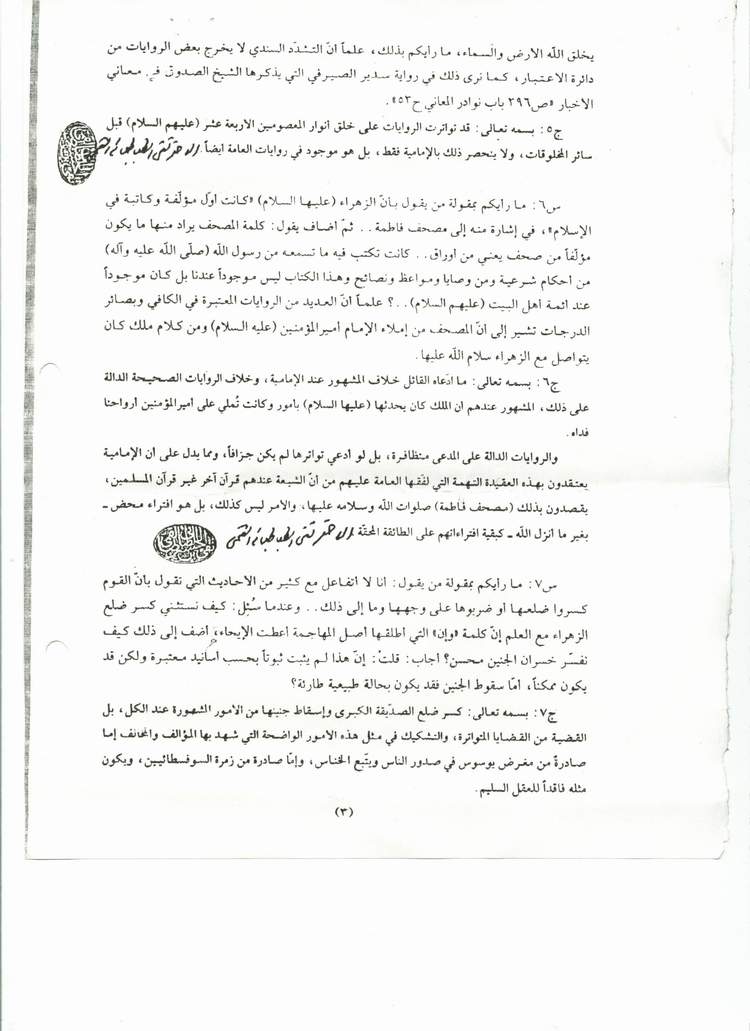 يخلق الله الارض والسماء، ما رأيكم بذلك، علماً انّ التشدّد السندي لا يخرج بعض الروايات من
دائرة الاعتبار، كما نرى ذلك في رواية سدير الصيرفي التي يذكرها الشيخ الصدوق في معاني
الاخبار «ص٣٩٦ باب نوادر المعاني ح٥٣».
ج٥: بسمه تعالى: قد تواترت الروايات على خلق أنوار المعصومين الاربعة عشر (عليهم السلام) قبل
سائر المخلوقات، ولا ينحصر ذلك بالإمامية فقط، بل هو موجود في روايات العامة أيضاً.
س٦: ما رأيكم بمقولة من يقول بأنّ الزهراء (عليها السلام) «كانت أوّل مؤلّفة وكاتبة في
الإسلام»، في إشارة منه إلى مصحف فاطمة.. ثمّ أضاف يقول: كلمة المصحف يراد منها ما يكون
مؤلّفاً من صحف يعني من أوراق.. كانت تكتب فيه ما تسمعه من رسول الله (صلّى الله عليه وآله)
من أحكام شرعية ومن وصايا ومواعظ ونصائح وهذا الكتاب ليس موجوداً عندنا بل كان موجوداً
عند ائمة أهل البيت (عليهم السلام)..؟ علماً أنّ العديد من الروايات المعتبرة في الكافي وبصائر
الدرجات تشير إلى أنّ المصحف من إملاء الإمام أميرالمؤمنين (عليه السلام) ومن كلام ملك كان
يتواصل مع الزهراء سلام الله عليها.
ج٦: بسمه تعالى: ما ادّعاه القائل خلاف المشهور عند الإمامية، وخلاف الروايات الصحيحة الدالة
على ذلك، المشهور عندهم ان الملك كان يحدثها (عليها السلام) بأمور وكانت تُملي على أميرالمؤمنين أرواحنا
فداه.
والروايات الدالة على المدعى متظافرة، بل لو أدعي تواترها لم يكن جزافاً، ومما يدل على أن الإمامية
يعتقدون بهذه العقيدة التهمة التي لفّقها العامة عليهم من أنّ الشيعة عندهم قرآن آخر غير قرآن المسلمين،
يقصدون بذلك (مصحف فاطمة) صلوات الله وسلامه عليها، والامر ليس كذلك، بل هو افتراء محض ـ
بغير ما أنزل الله ـ كبقية افتراءاتهم على الطائفة المحقّة.
س٧: ما رأيكم بمقولة من يقول: أنا لا أتفاعل مع كثير من الأحاديث التي تقول بأنّ القوم
كسروا ضلعها أو ضربوها على وجهها وما إلى ذلك.. وعندما سُئِل: كيف نستثني كسر ضلع
الزهراء مع العلم إنّ كلمة «وإن» التي أطلقها أصل المهاجمة أعطت الإيحاء، أضف إلى ذلك كيف
نفسّر خسران الجنين محسن؟ أجاب: قلتُ: إنّ هذا لم يثبت ثبوتاً بحسب أسانيد معتبرة ولكن قد
يكون ممكناً، أمّا سقوط الجنين فقد يكون بحالة طبيعية طارئة؟
ج٧: بسمه تعالى: كسر ضلع الصدّيقة الكبرى وإسقاط جنينها من الامور الشهورة عند الكل، بل
القضية من القضايا المتواترة، والتشكيك في مثل هذه الامور الواضحة التي شهد بها المؤالف والمخالف إما
صادرةً من مغرض يوسوس في صدور الناس ويتّبع الخناس، وإمّا صادرة من زمرة السوفسطائيين، ويكون
مثله فاقداً للعقل السليم.
(٣)